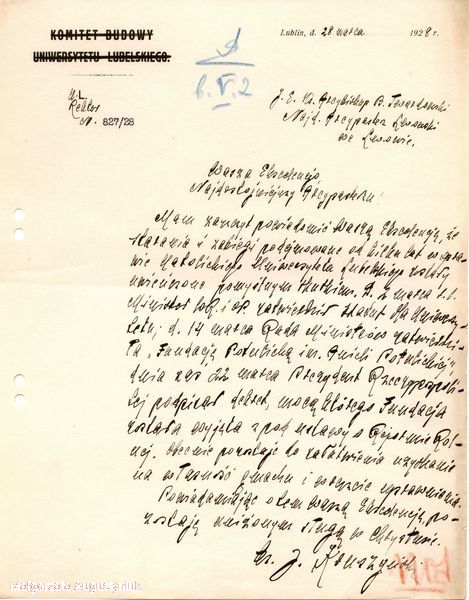 KOMITET BUDOWY
UNIWERSYTETU LUBELSKIEGO.
Lublin, d. 28 marca 1928 r.
U. L.
Rektor
N. 827/28
b. V. 2
J. E. Ks. Arcybiskup B. Twardowski
Najd. Arcypasterz Lwowski
we Lwowie.
Wasza Ekscelencjo,
Najdostojniejszy Arcypasterzu!
Mam zaszczyt powiadomić Waszą Ekscelencję, że
starania i zabiegi podejmowane od kilku lat w spra-
wie Katolickiego Uniwersytetu Lubelskiego zostały
uwieńczone pomyślnym skutkiem. D. 2 marca r. b.
Minister W. R. i O. P. zatwierdził statut dla Uniwersy-
tetu; d. 14 marca Rada Ministrów zatwierdzi-
ła „Fundację Potulicką im. Anieli Potulickiej",
dnia zaś 22 marca Prezydent Rzeczypospoli-
tej podpisał dekret, mocą którego Fundacja
została wyjęta z pod ustawy o Reformie Rol-
nej. Obecnie pozostaje do załatwienia uzyskanie
na własność gmachu i uprawnienia.
Powiadamiając o tem Waszą Ekscelencję, po-
zostaję uniżonym sługą w Chrystusie.
Ks. J. Kruszyński